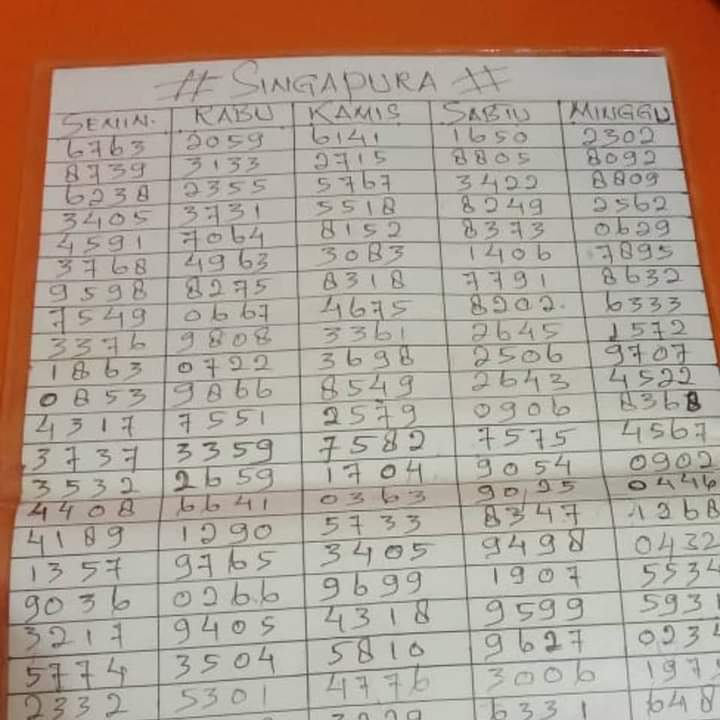 # SINGAPURA #
SENIN. RABU KAMIS SABTU MINGGU
6763 2059 6141 1650 2302
8739 3133 2715 8805 8092
6238 2355 5767 3422 8809
3405 3731 5518 8249 2562
4591 7064 8152 8373 0629
3768 4963 3083 1406 7895
9598 8275 8318 7791 8632
7549 0667 4675 8202. 6333
3376 9808 3361 2645 1572
1863 0722 3698 2506 9707
0853 9866 8549 2643 4522
4317 7551 2579 0906 8368
3737 3359 7582 7575 4567
3532 2659 1704 9054 0902
4408 6641 0363 9025 0446
4189 1290 5733 8347 1268
1357 9765 3405 9498 0432
9036 0266 9699 1907 5534
3217 9405 4318 9599 5931
5774 3504 5810 9627 0234
2332 5301 4776 3006 197
6331 648